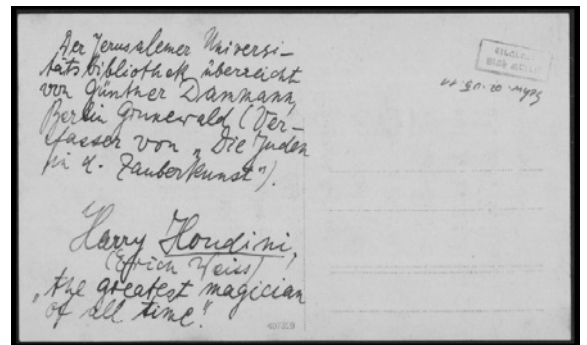 Der Jerusalemer Universi-
tätsbibliothek überreicht
von Günther Dammann,
Berlin Grunewald (Ver-
fasser von „Die Juden
in d. Zauberkunst").
Harry Houdini,
(Ehrich Weiss)
„the greatest magician
of all time."